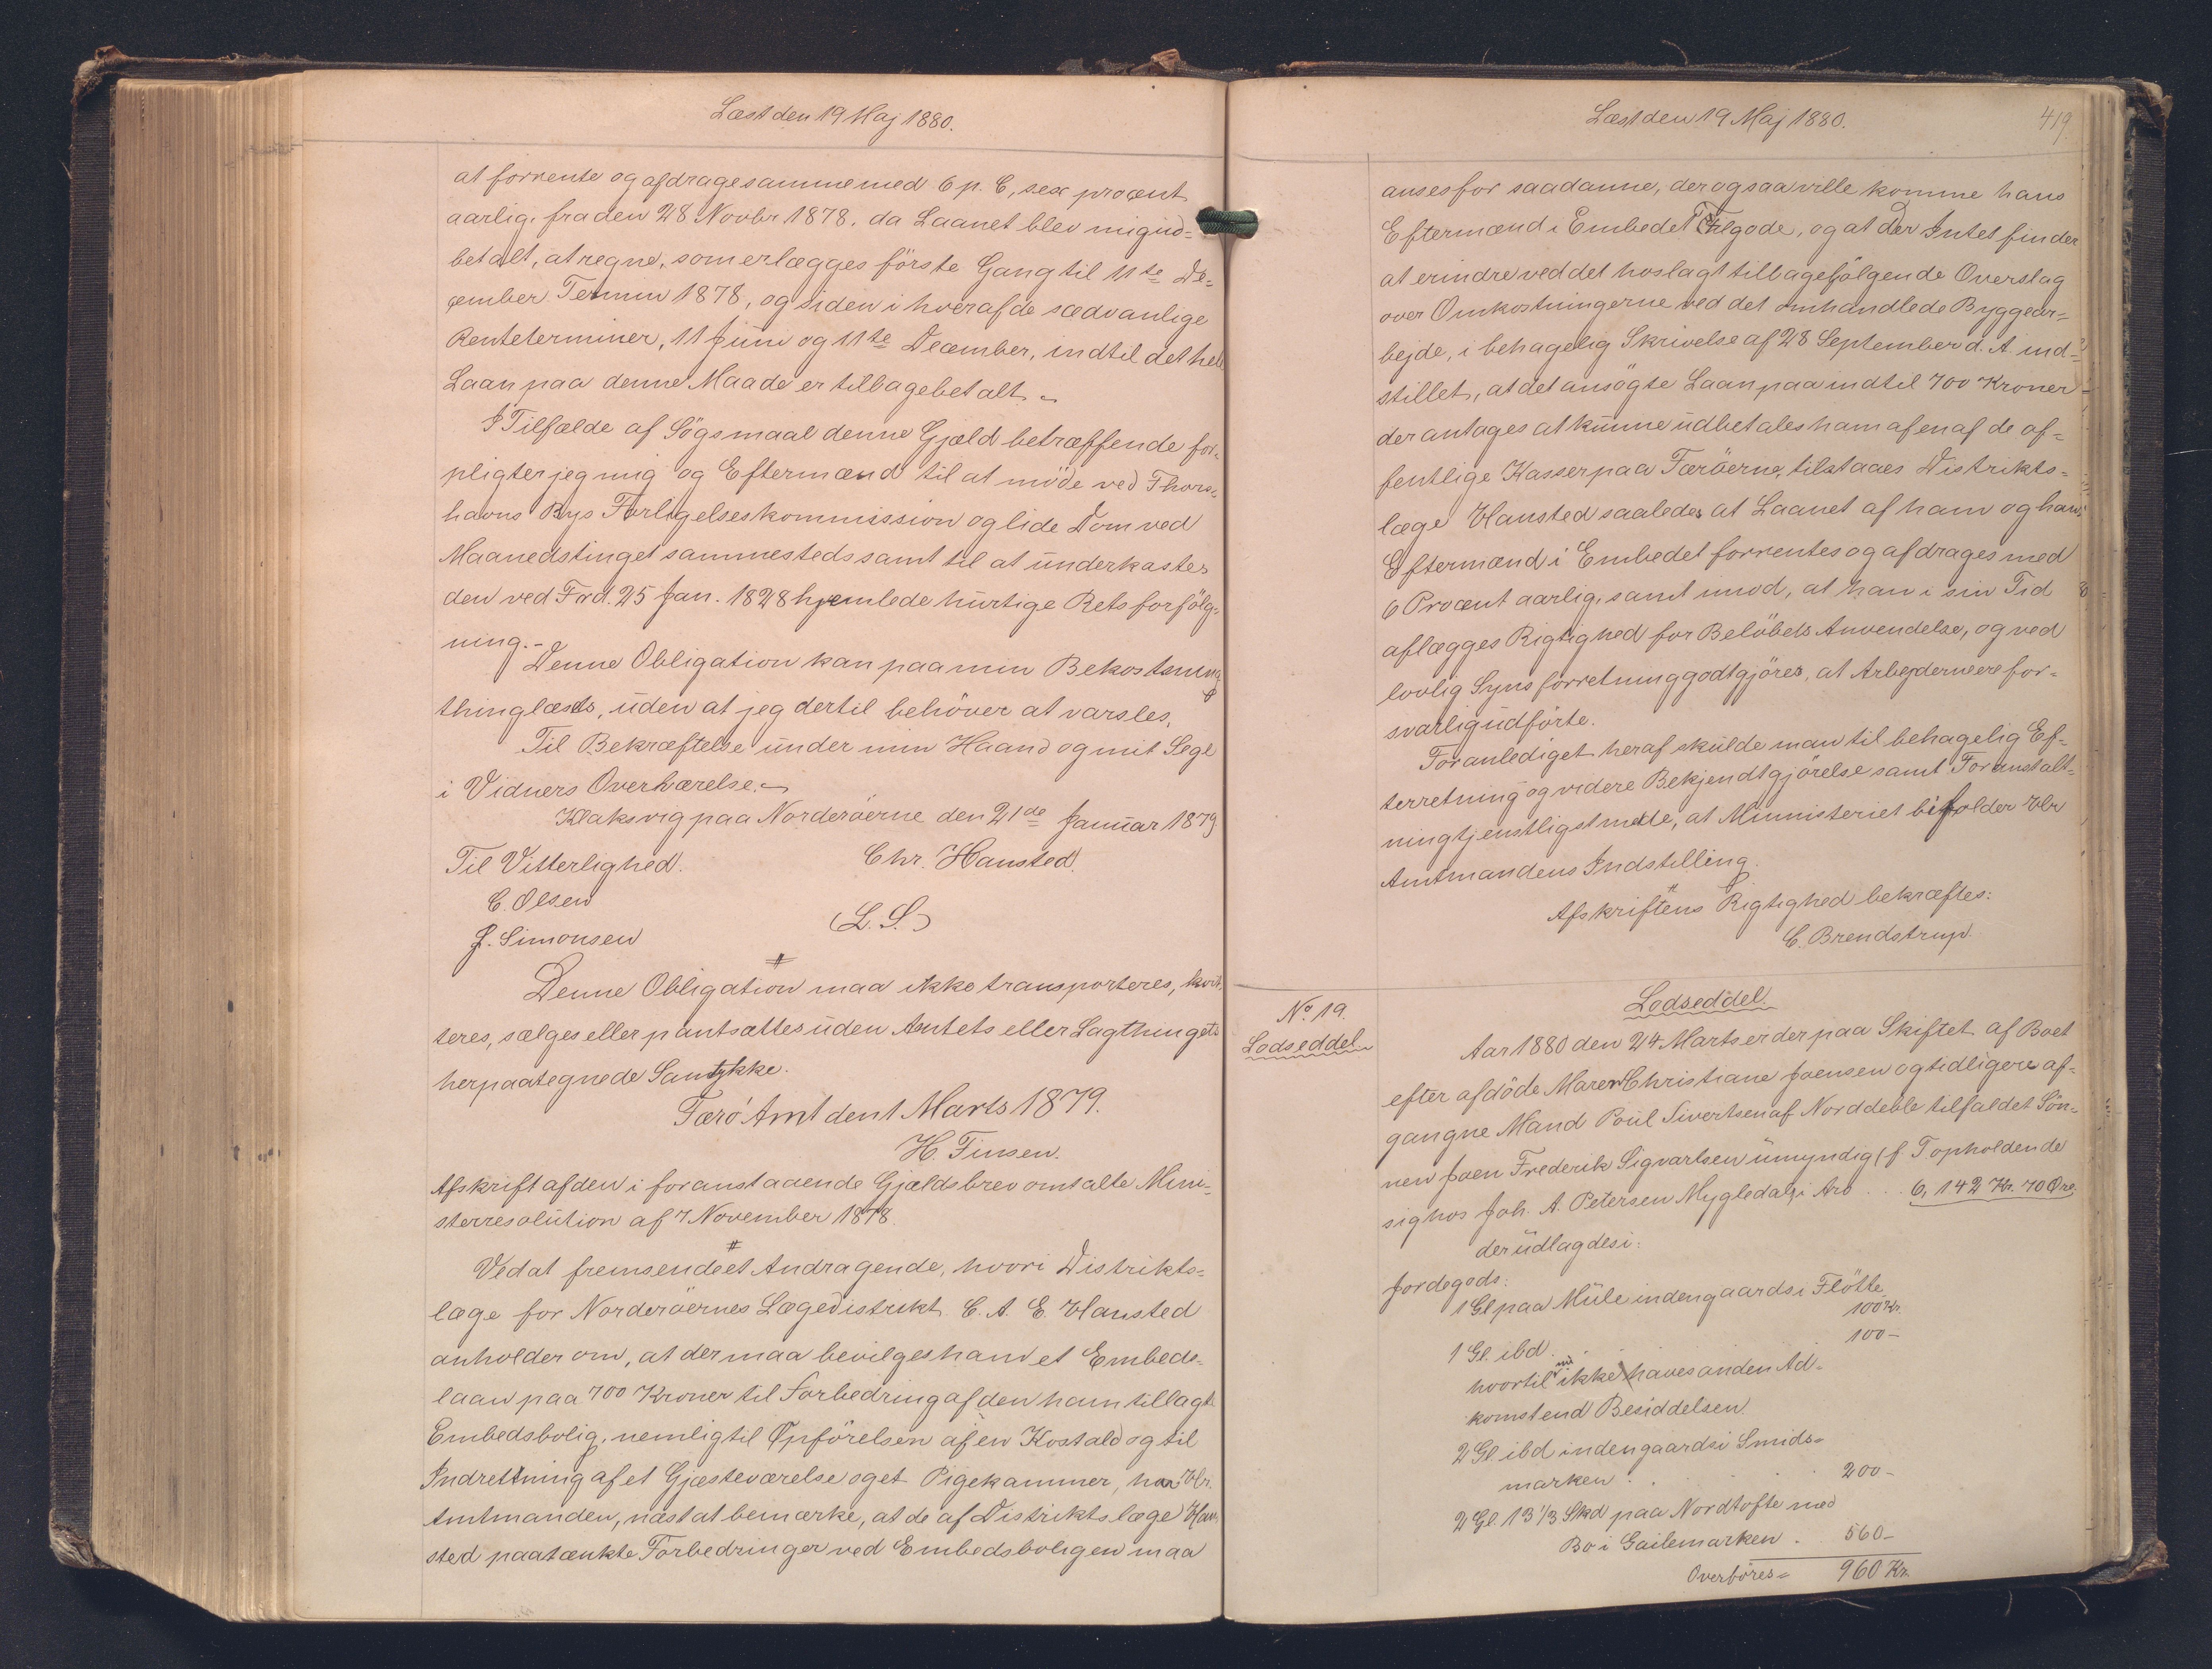 Læst den 19 Maj 1880.
at forrente og afdrage samme med 6 p. C, sex procent
aarlig, fra den 28 Novbr 1878, da Laanet blev mig ud=
betalt, at regne, som erlægges förste Gang til 11te De=
cember Termin 1878, og siden i hver af de sædvanlige
Renteterminer, 11 Juni og 11te December, indtil det hele
Laan paa denne Maade er tilbagebetalt.
I Tilfælde af Sögsmaal denne Gjæld betræffende for=
pligter jeg mig og Eftermænd til at möde ved Thors=
havns Bys Forligelseskommission og lide Dom ved
Maanedstinget sammesteds samt til at underkastes
den ved Frd. 25 Jan. 1828 hjemlede hurtige Retsforfölg=
ning.-
Denne Obligation kan paa min Bekostning
thinglæses, uden at jeg dertil behöver at varsles.
Til Bekræftelse under min Haand og mit Segl
i Vidners Overværelse.
Klaksvig paa Norderöerne den 21de Januar 1879
Til Vitterlighed. Chr. Hansted.
C. Olsen
J. Simonsen (L.S.)
Denne Obligation maa ikke transporteres, kvit=
teres, sælges eller pantsættes uden Amtets eller Lagthingets
herpaategnede Samtykke.
Færö Amt den 1 Marts 1879.
H. Finsen.
Afskrift af den i foranstaaende Gjældsbrev omtalte Mini=
sterresolution af 7 November 1878.
Ved at fremsende et Andragende, hvori Distrikts=
læge for Norderöernes Lægedistrikt C. A. E. Hansted
anholder om, at der maa bevilges ham et Embeds=
laan paa 700 Kroner til Forbedring af den ham tillagte
Embedsbolig, nemlig til Opförelsen af en Kostald og til
Indretning af et Gjæsteværelse og et Pigekammer, har Hr.
Amtmanden, næst at bemærke, at de af Distriktslæge Han=
sted paatænkte Forbedringer ved Embedsboligen maa
Læst den 19 Maj 1880.
419
anses for saadanne, der ogsaa ville komme hans
Eftermænd i Embedet tilgode, og at der Intet finder
at erindre ved det hoslagt tilbagefölgende Overslag
over Omkostningerne ved det omhandlede Byggear=
bejde, i behagelig Skrivelse af 28 September d. A ind=
stillet, at det ansögte Laan paa indtil 700 Kroner
der antages at kunne udbetales ham af en af de of=
fentlige Kasser paa Færöerne, tilstaaes Distrikts=
læge Hansted saaledes at Laanet af ham og hans
Eftermænd i Embedet forrentes og afdrages med
6 Procent aarlig, samt imod, at han i sin Tid
aflægges Rigtighed for Belöbets Anvendelse, og ved
lovlig Synsforretning godtgjöres, at Arbejderne ere for=
svarlig udförte.
Foranlediget heraf skulde man til behagelig Ef=
terretning og videre Bekjendtgjörelse samt Foranstalt=
ning tjenstligst melde, at Ministeriet bifalder Hr
Amtmandens Indstilling.
Afskriftens Rigtighed bekræftes:
C. Brendstrup.
No 19.
Lodseddel
Lodseddel.
Aar 1880 den 24 Marts er der paa Skiftet af Boet
efter afdöde Maren Christiane Joensen og tidligere af=
gangne Mand Poul Sivertsen af Norddeble tilfaldet Sön=
nen Joen Frederik Sigvartsen umyndig (f. T opholdende
sig hos Joh. A. Petersen Mygledal, i Arv . . 6,142 Kr. 70 Öre,
der udlagdes i:
Jordegods:
1 Gl paa Mule indengaards i Flötte 100 Kr.
1 Gl. ibd. 100 -
hvortil ikke haves anden Ad=
komst end Besiddelsen
2 Gl. ibd indengaards i Smids=
marken . . 200 -
2 Gl. 13 1/3 Skd paa Nordtofte med
Bo i Gailemarken . 560 -
Overföres = 960 Kr.